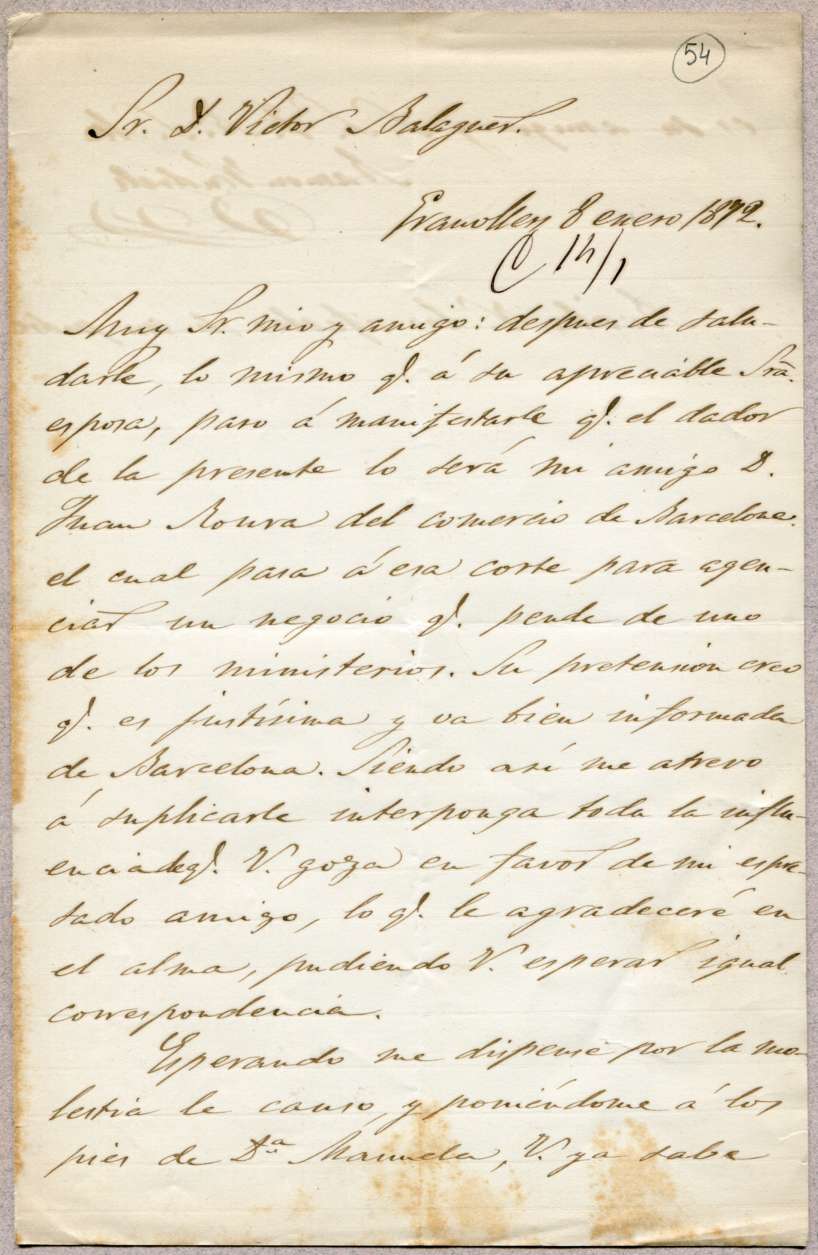 54
Sr. D. Victor Balaguer.
Granollers 8 enero 1872.
C 14/1
Muy Sr. mio y amigo: despues de salu-
darle, lo mismo q.e á su apreciable Sra.
esposa, paso á manifestarle q.e el dador
de la presente lo será mi amigo D.
Juan Roura del comercio de Barcelona.
el cual pasa á esa corte para agen-
ciar un negocio q.e pende de uno
de los ministerios. Su pretension creo
q.e es justísima y va bien informada
de Barcelona. Siendo así me atrevo
á suplicarle interponga toda la influ-
encia de q.e V. goza en favor de mi espre-
sado amigo, lo q.e le agradeceré en
el alma, pudiendo V. esperar igual
correspondencia.
Esperando me dispense por la mo-
lestia le causo, y poniéndome á los
pies de Dª Manuela, V. ya sabe